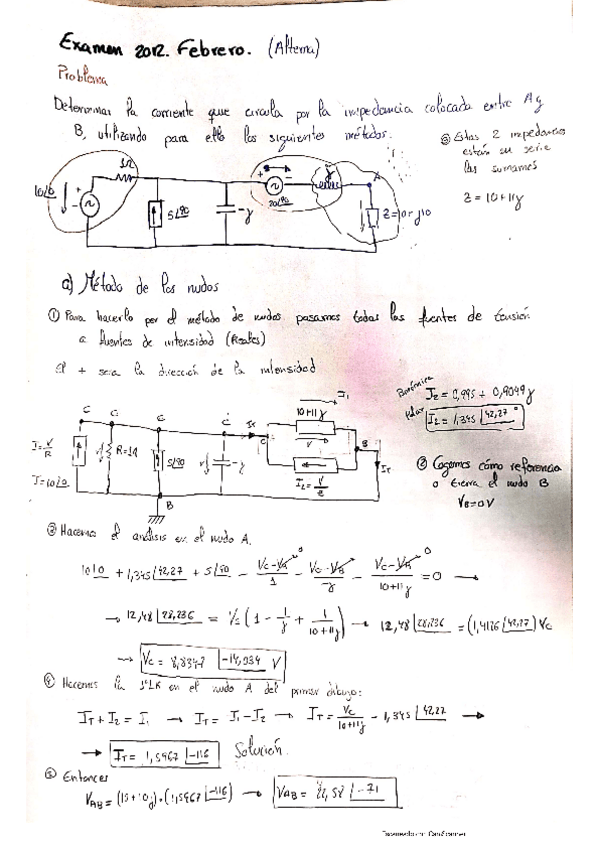 Examen 2012. Febrero. (Alterna)
Problema
Determinar la corriente que circula por la impedancia colocada entre A y
B, utilizando para ello los siguientes métodos.
Estas 2 impedancias
están en serie
las sumamos
Z = 10+11j
10∠0
1Ω
5∠90
-j
20∠90
j
A
Z=10+j10
a) Método de los nudos
① Para hacerlo por el método de nudos pasamos todas las fuentes de tensión
a fuentes de intensidad (Reales)
El + sera la dirección de la intensidad
Binómica
I₂ = 0,995 + 0,9049j
Polar
I₂ = 1,345∠42,27°
② Cogemos cómo referencia
o tierra el nudo B
V_B=0V
C
C
C
C
I_T
10+11j
I₁
I=V/R
I=10∠0
R=1Ω
5∠90
-j
V
C
B
I₂=V/R
I_T
B
③ Hacemos el análisis en el nudo A.
10∠0 + 1,345∠42,27 + 5∠90 - (V_C-V_B)/1 - (V_C-V_B)/-j - (V_C-V_B)/(10+11j) = 0 →
→ 12,48∠28,236 = V_C (1 - 1/j + 1/(10+11j)) → 12,48∠28,236 = (1,4126∠42,27) V_C
→ V_C = 8,8348∠-14,034 V
④ Hacemos la 1ªLK en el nudo A del primer dibujo:
I_T + I₂ = I₁ → I_T = I₁ - I₂ → I_T = V_C/(10+11j) - 1,345∠42,27 →
→ I_T = 1,5967∠-116 Solución.
⑤ Entonces
V_AB = (10+10j)·(1,5967∠-116) → V_AB = 22,58∠-71
Escaneado con CamScanner